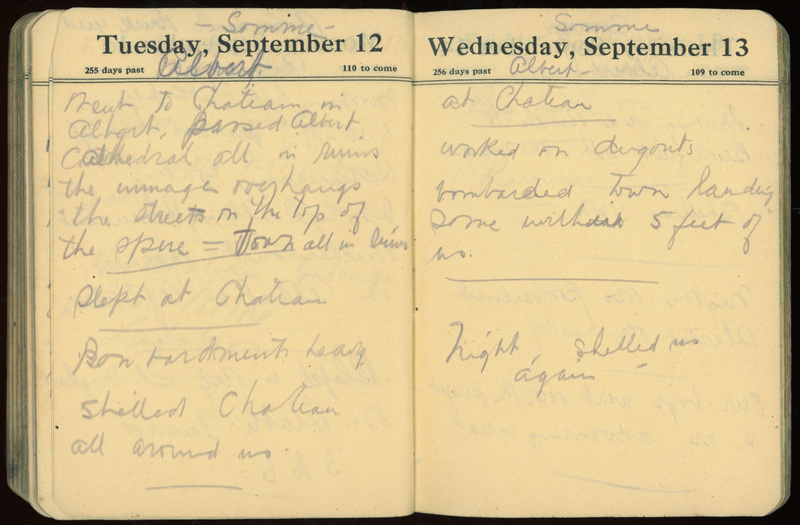 - Somme -
Tuesday, September 12
255 days past
Albert.
110 to come
Went to Chateau in
Albert, passed Albert
Cathedral all in ruins
the immages overhangs
the streets on the top of
the spire = Town all in ruins
slept at Chateau
Bombardment heavy
shelled Chateau
all around us.
Somme
Wednesday, September 13
256 days past
Albert -
109 to come
at Chateau
worked on dugouts
bombarded town landing
some within 5 feet of
us.
Night shelled us
again -